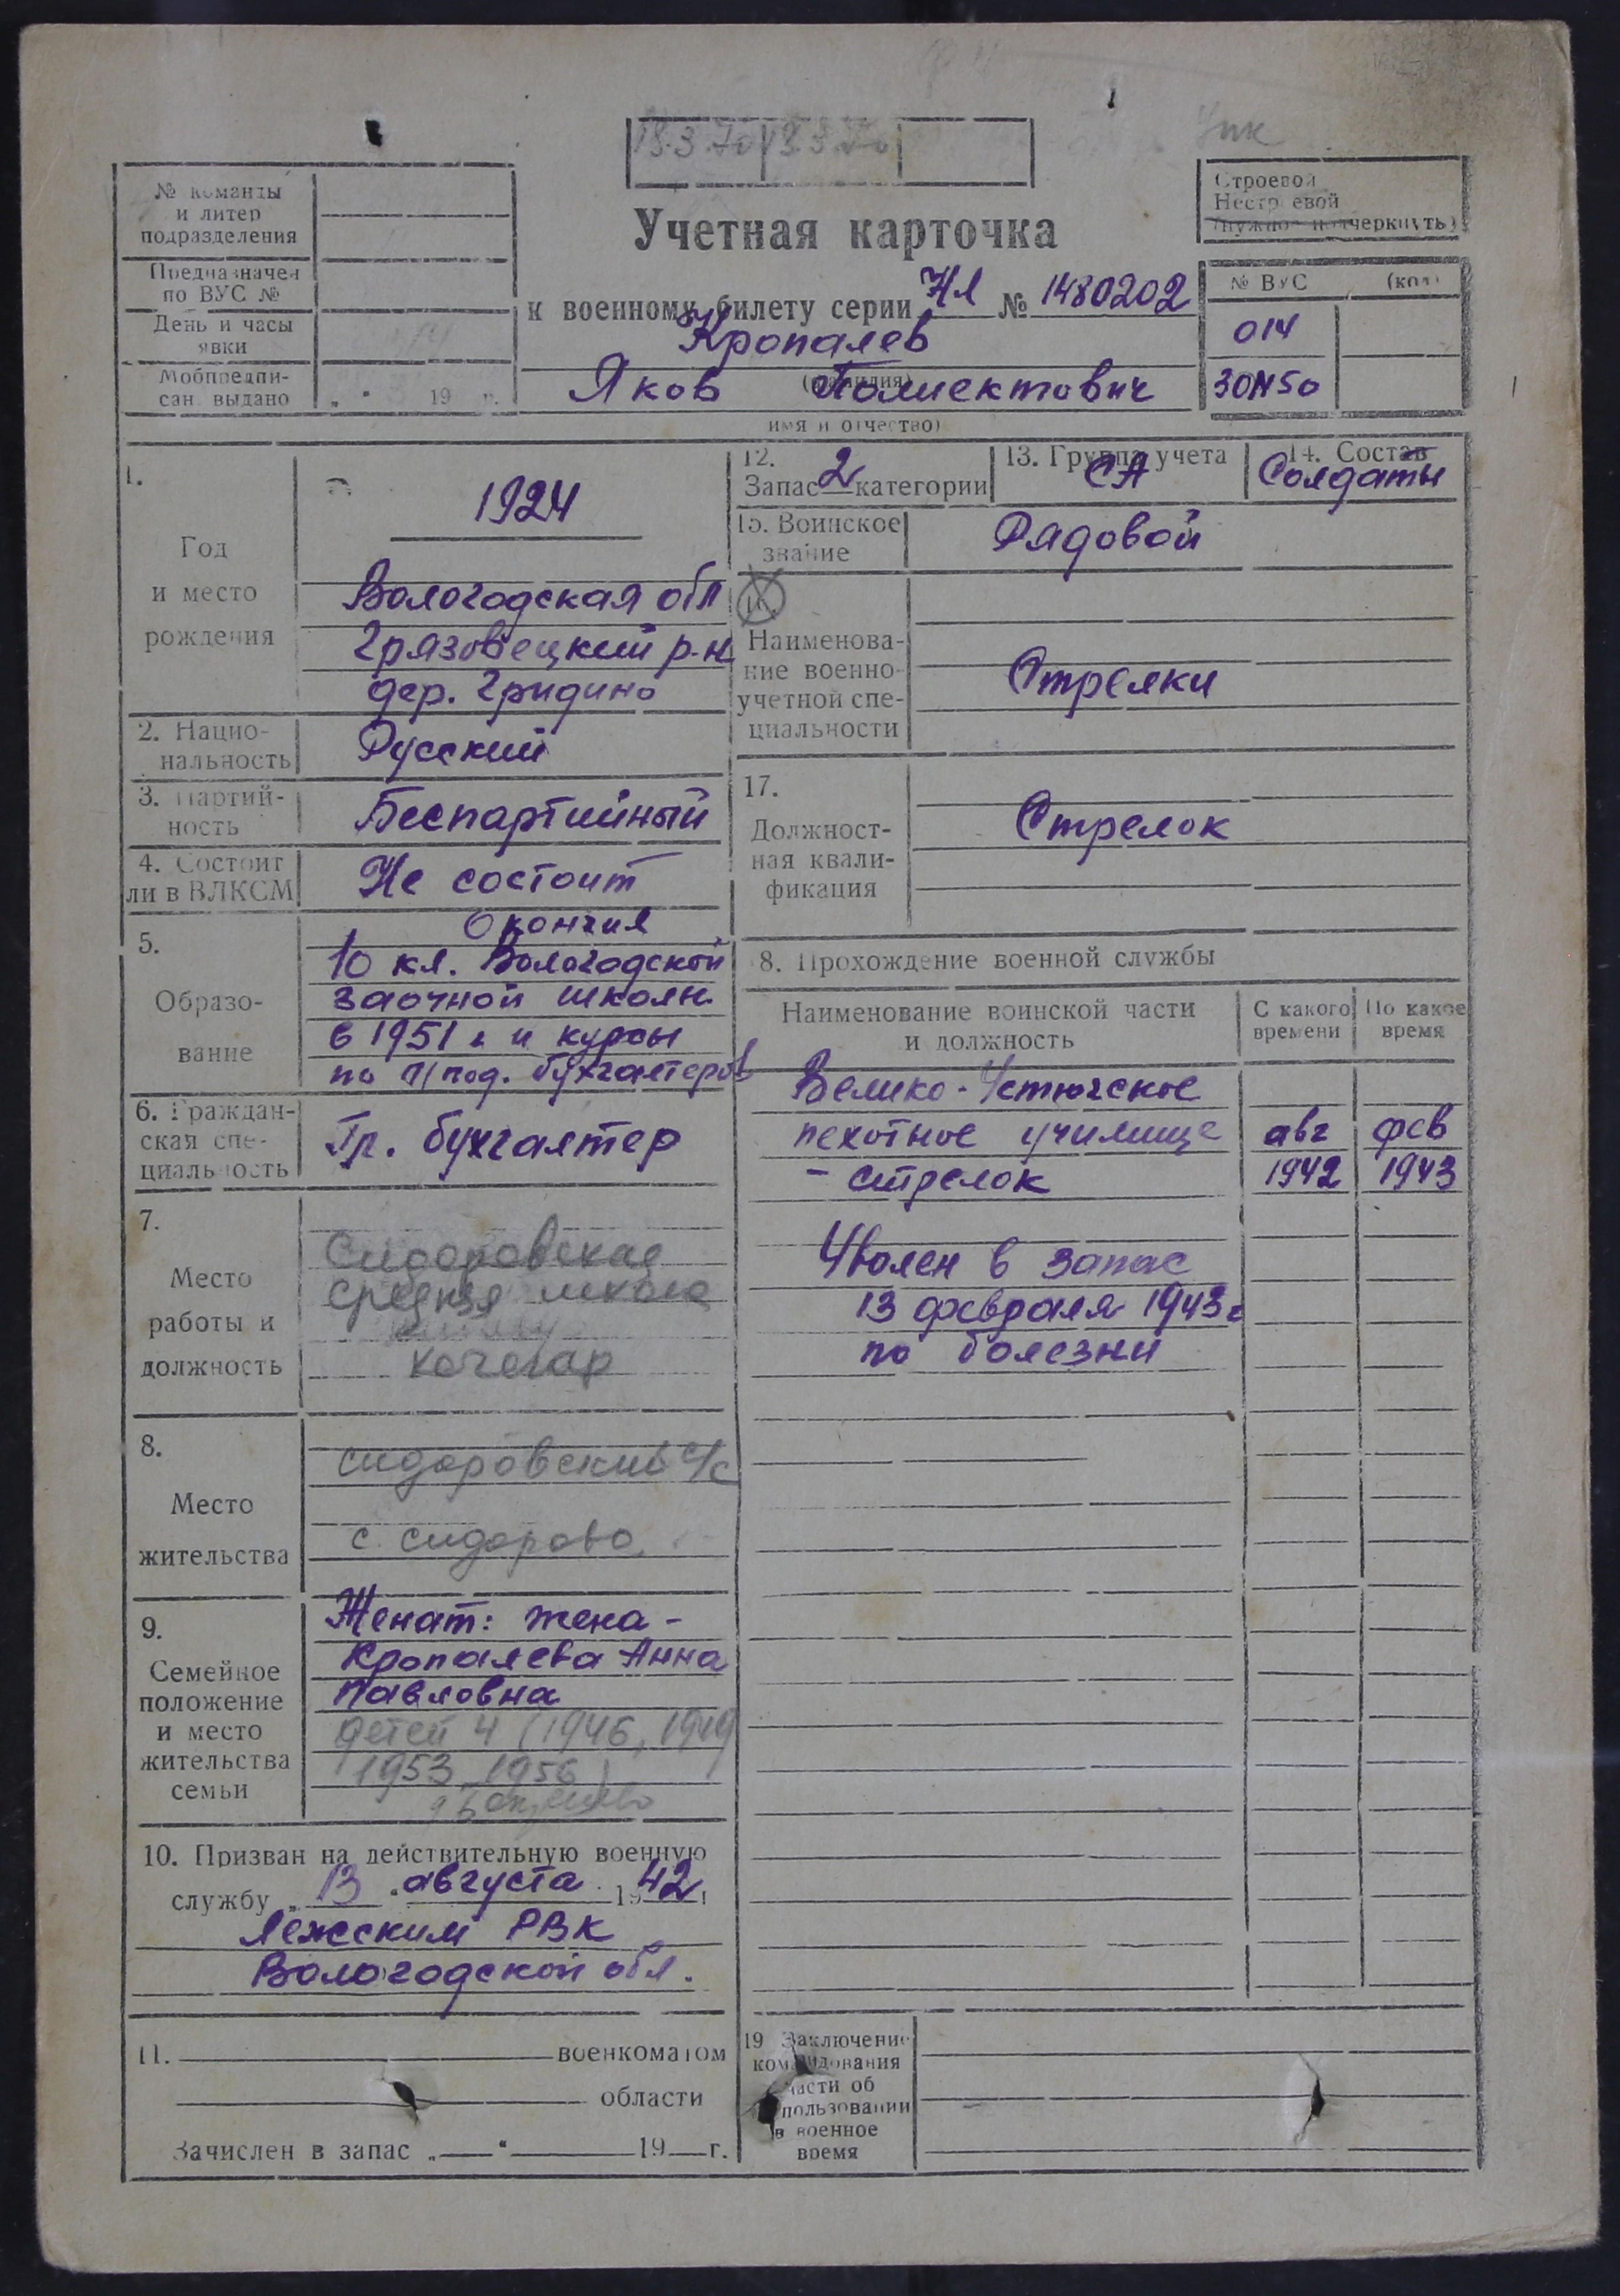 18.3.70 18.3.70
№ команды
и литер
подразделения
Предназначен
по ВУС №
День и часы
явки
Мобпредпи-
сан. выдано „ “ 19 г.
Учетная карточка
к военному билету серии НЛ № 1480202
Кропалев
(фамилия)
Яков Полиектович
имя и отчество)
Строевой
Нестроевой
(нужное подчеркнуть)
№ ВУС (код)
014
30М50
1.
Год
и место
рождения
1924
Вологодская обл
Грязовецкий р-н
дер. Гридино
2. Нацио-
нальность
Русский
3. Партий-
ность
Беспартийный
4. Состоит
ли в ВЛКСМ
Не состоит
5.
Образо-
вание
Окончил
10 кл. Вологодской
заочной школы
в 1951 г. и курсы
по п/под. бухгалтеров
6. Граждан-
ская спе-
циальность
Гр. бухгалтер
7.
Место
работы и
должность
Сидоровская
средняя школа
кочегар
8.
Место
жительства
Сидоровский с/с
с. Сидорово
9.
Семейное
положение
и место
жительства
семьи
Женат: жена -
Кропалева Анна
Павловна
детей 4 (1946, 1949
1953, 1956)
10. Призван на действительную военную
службу „13“ августа 1942 г
Лежским РВК
Вологодской обл.
11. военкоматом
области
Зачислен в запас „ “ 19 г.
12.
Запас 2 категории
13. Группа учета
СА
14. Состав
Солдаты
15. Воинское
звание
Рядовой
16.
Наименова-
ние военно-
учетной спе-
циальности
Стрелки
17.
Должност-
ная квали-
фикация
Стрелок
8. Прохождение военной службы
Наименование воинской части
и должность
С какого
времени
По какое
время
Велико-Устюгское
пехотное училище авг фев
- стрелок 1942 1943
Уволен в запас
13 февраля 1943 г
по болезни
19 Заключение
командования
части об
использовании
в военное
время